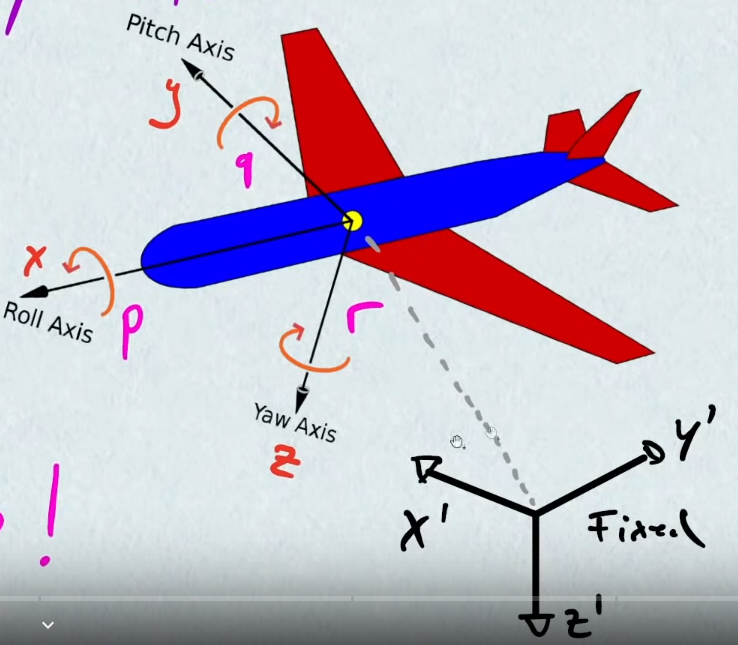 Pitch Axis
y
q
x
Roll Axis
p
r
Yaw Axis
z
!
y'
x'
Fixed
z'